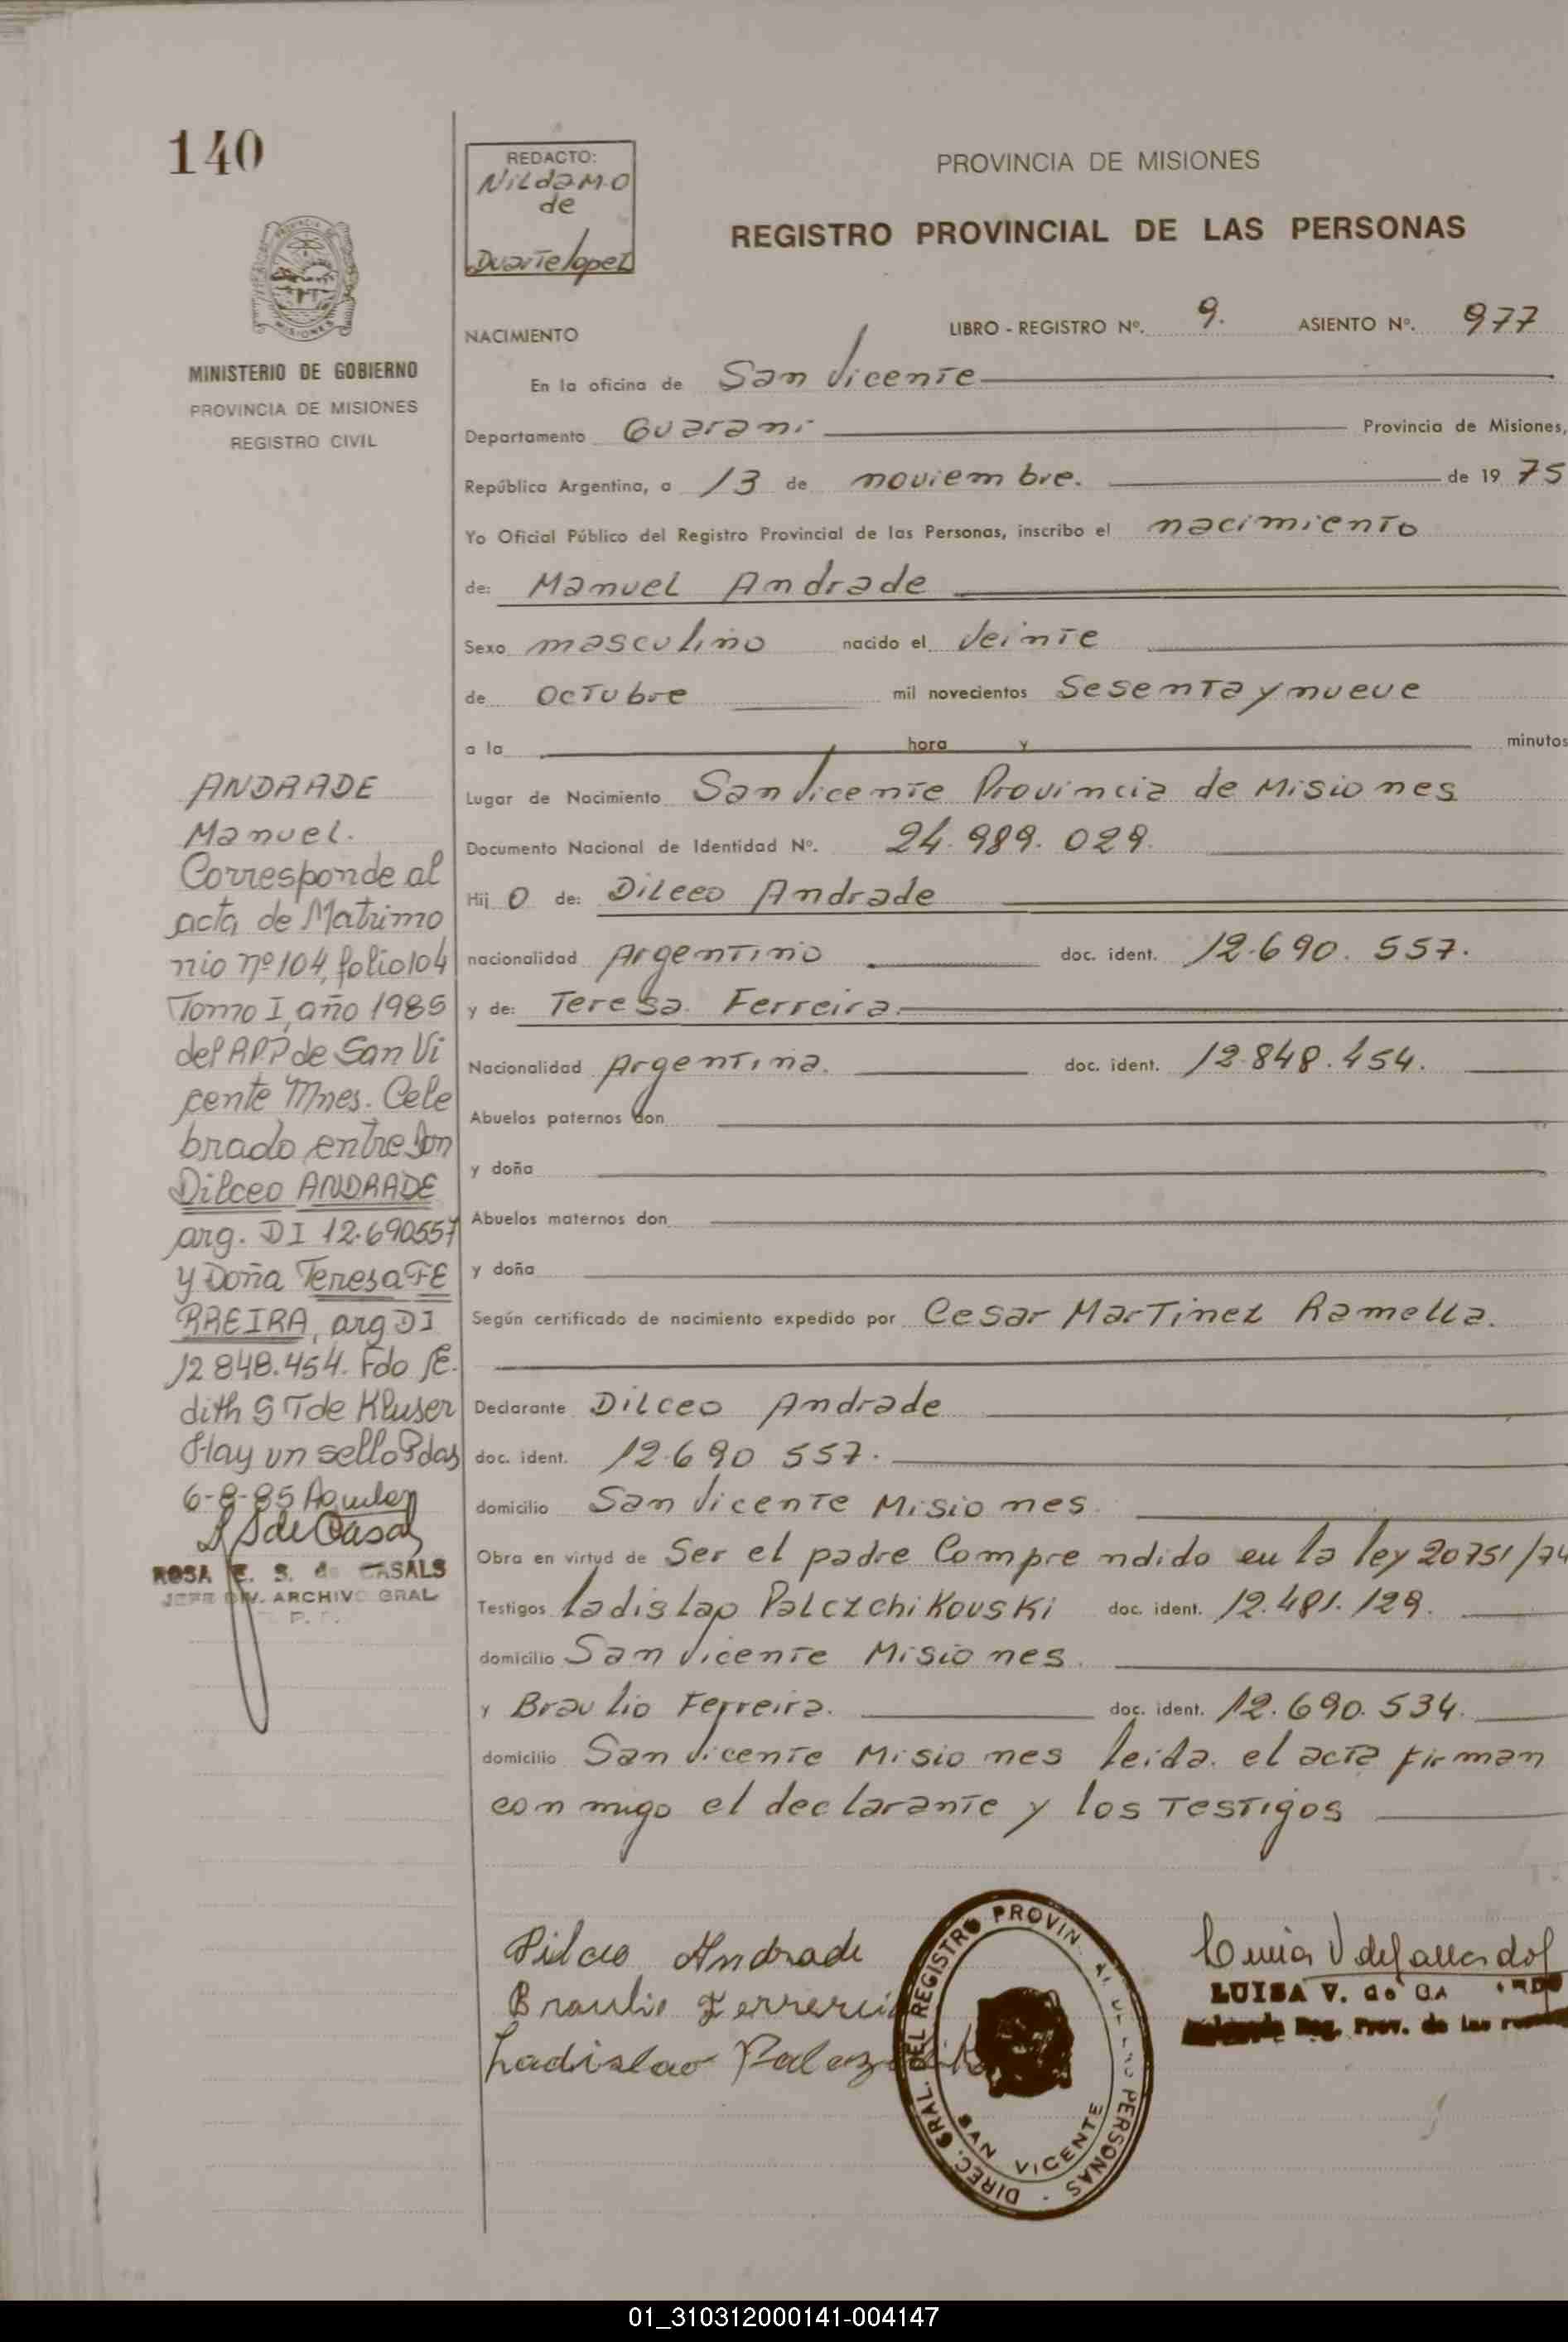 140
REDACTO:
Nilda M.O
de
Duarte lopez
PROVINCIA DE MISIONES
REGISTRO PROVINCIAL DE LAS PERSONAS
MINISTERIO DE GOBIERNO
PROVINCIA DE MISIONES
REGISTRO CIVIL
NACIMIENTO LIBRO - REGISTRO Nº. 9. ASIENTO Nº. 977
En la oficina de San Vicente
Departamento Guarani Provincia de Misiones,
República Argentina, a 13 de noviembre. de 19 75
Yo Oficial Público del Registro Provincial de las Personas, inscribo el nacimiento
de: Manuel Andrade
Sexo masculino nacido el veinte
de octubre mil novecientos Sesenta y nueve
a la hora y minutos
Lugar de Nacimiento San Vicente Provincia de Misiones
Documento Nacional de Identidad Nº. 24.989.029.
Hij o de: Dilceo Andrade
nacionalidad Argentino doc. ident. 12.690.557.
y de: Teresa Ferreira
Nacionalidad Argentina. doc. ident. 12.848.454.
Abuelos paternos don
y doña
Abuelos maternos don
y doña
Según certificado de nacimiento expedido por Cesar Martinez Ramella.
Declarante Dilceo Andrade
doc. ident. 12.690 557.
domicilio San Vicente Misiones.
Obra en virtud de Ser el padre Comprendido en la ley 20751/74
Testigos ladislao Palczchikouski doc. ident. 12.481.129.
domicilio San Vicente Misiones.
y Braulio Ferreira. doc. ident. 12.690.534.
domicilio San Vicente Misiones leida. el acta firman
conmigo el declarante y los Testigos
ANDRADE
Manuel.
Corresponde al
acta de Matrimo
nio nº 104, folio 104
Tomo I, año 1985
del RPP de San Vi
cente Mnes. Cele
brado entre Don
Dilceo ANDRADE
arg. DI 12.690557
y Doña Teresa FE
RREIRA, arg DI
12 848.454. Fdo E.
dith S T de Kluser
Hay un sello Pdas
6-8-85
ROSA E. S. de CASALS
JEFE DIV. ARCHIVO GRAL
Dilceo Andrade
Braulio Ferrerei
Ladislao
DIREC. GRAL. DEL REGISTRO PROVIN. PERSONAS
SAN VICENTE
LUISA V. de
Reg. Prov. de las
01_310312000141-004147